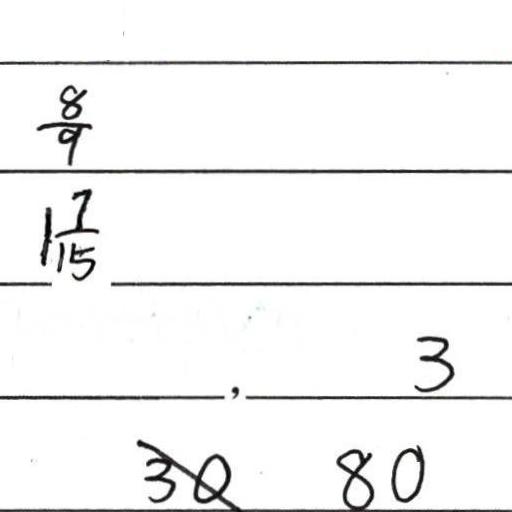 8/9
1 7/15
, 3
30 80